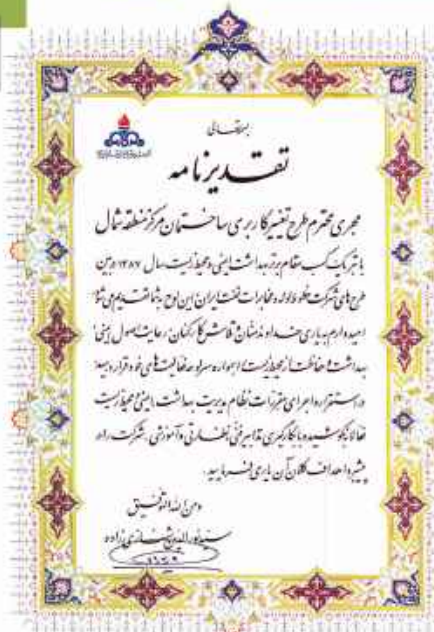 بسمه تعالی
تقدیرنامه
مجری محترم طرح تغییر کاربری ساختمان مرکز منطقه شمال
با تبریک کسب مقام برتر بهداشت ایمنی و محیط زیست سال ۱۳۸۷ در بین
طرح های شرکت خطوط لوله و مخابرات نفت ایران این لوح به شما تقدیم می شود
امیدوارم به یاری خداوند منان و تلاش کارکنان رعایت اصول ایمنی
بهداشت و حفاظت از محیط زیست را همواره سرلوحه فعالیت های خود قرار دهید
در استقرار و اجرای مقررات نظام مدیریت بهداشت ایمنی و محیط زیست
فعالانه کوشیده با بکارگیری تدابیر فنی نظارتی و آموزشی شرکت را در
پیشبرد اهداف کلان آن یاری فرمایید
ومن الله التوفیق
سید نورالدین زاده